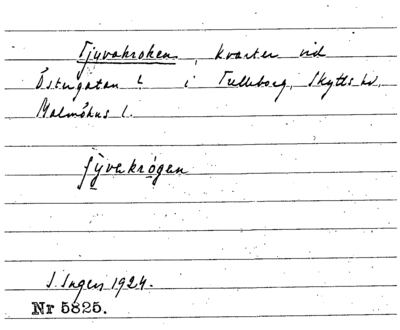 Tjuvakroken, kvarter vid
Östergatan i Trelleborg, Skytts hd,
Malmöhus l.
S. Ingers 1924.
Nr 5825.